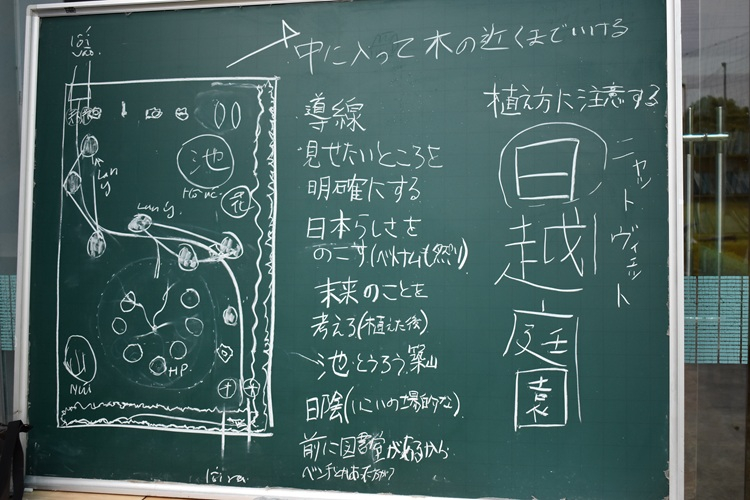 中に入って木の近くまでいける
導線
見せたいところを
明確にする
日本らしさを
のこす(ベトナムも然り)
未来のことを
考えろ(植えた後)
池・とうろう、築山
日陰(いこいの場的な)
前に図書室があるから
ベンチとかあった方が
植え方に注意する
日
越
庭
園
ニャットヴィェット
lối vào
池
Hồ nước
花
Lưu ý
Lưu ý
山
Núi
HP
lối ra